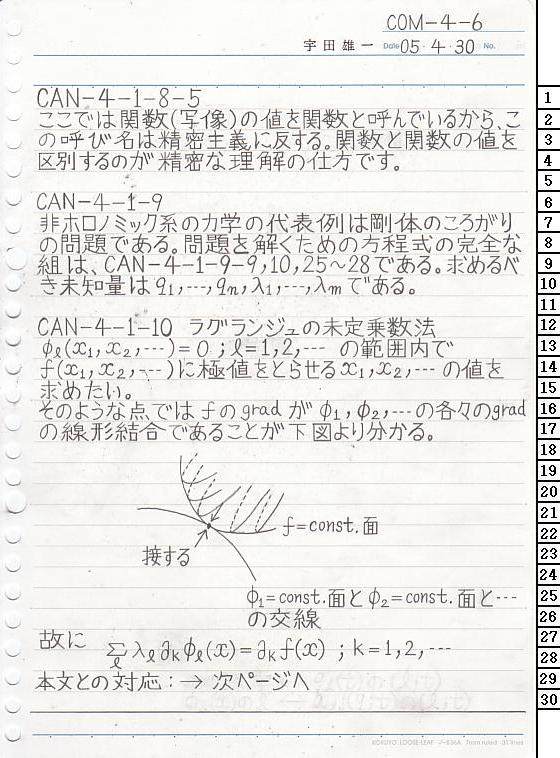 COM-4-6
宇田雄一 Date 05・4・30 No.
CAN-4-1-8-5
ここでは関数(写像)の値を関数と呼んでいるから、こ
の呼び名は精密主義に反する。関数と関数の値を
区別するのが精密な理解の仕方です。
CAN-4-1-9
非ホロノミック系の力学の代表例は剛体のころがり
の問題である。問題を解くための方程式の完全な
組は、CAN-4-1-9-9,10,25~28である。求めるべ
き未知量はq₁,…,qn,λ₁,…,λmである。
CAN-4-1-10 ラグランジュの未定乗数法
φℓ(x₁,x₂,…)=0 ; ℓ=1,2,… の範囲内で
f(x₁,x₂,…)に極値をとらせるx₁,x₂,… の値を
求めたい。
そのような点では f の grad が φ₁,φ₂,… の各々の grad
の線形結合であることが下図より分かる。
f=const.面
接する
φ₁=const.面とφ₂=const.面と…
の交線
故に Σℓ λℓ∂kφℓ(x)=∂kf(x) ; k=1,2,…
本文との対応:→ 次ページへ
KOKUYO LOOSE-LEAF ノ-836A 7mm ruled 31 lines
1
2
3
4
5
6
7
8
9
10
11
12
13
14
15
16
17
18
19
20
21
22
23
24
25
26
27
28
29
30